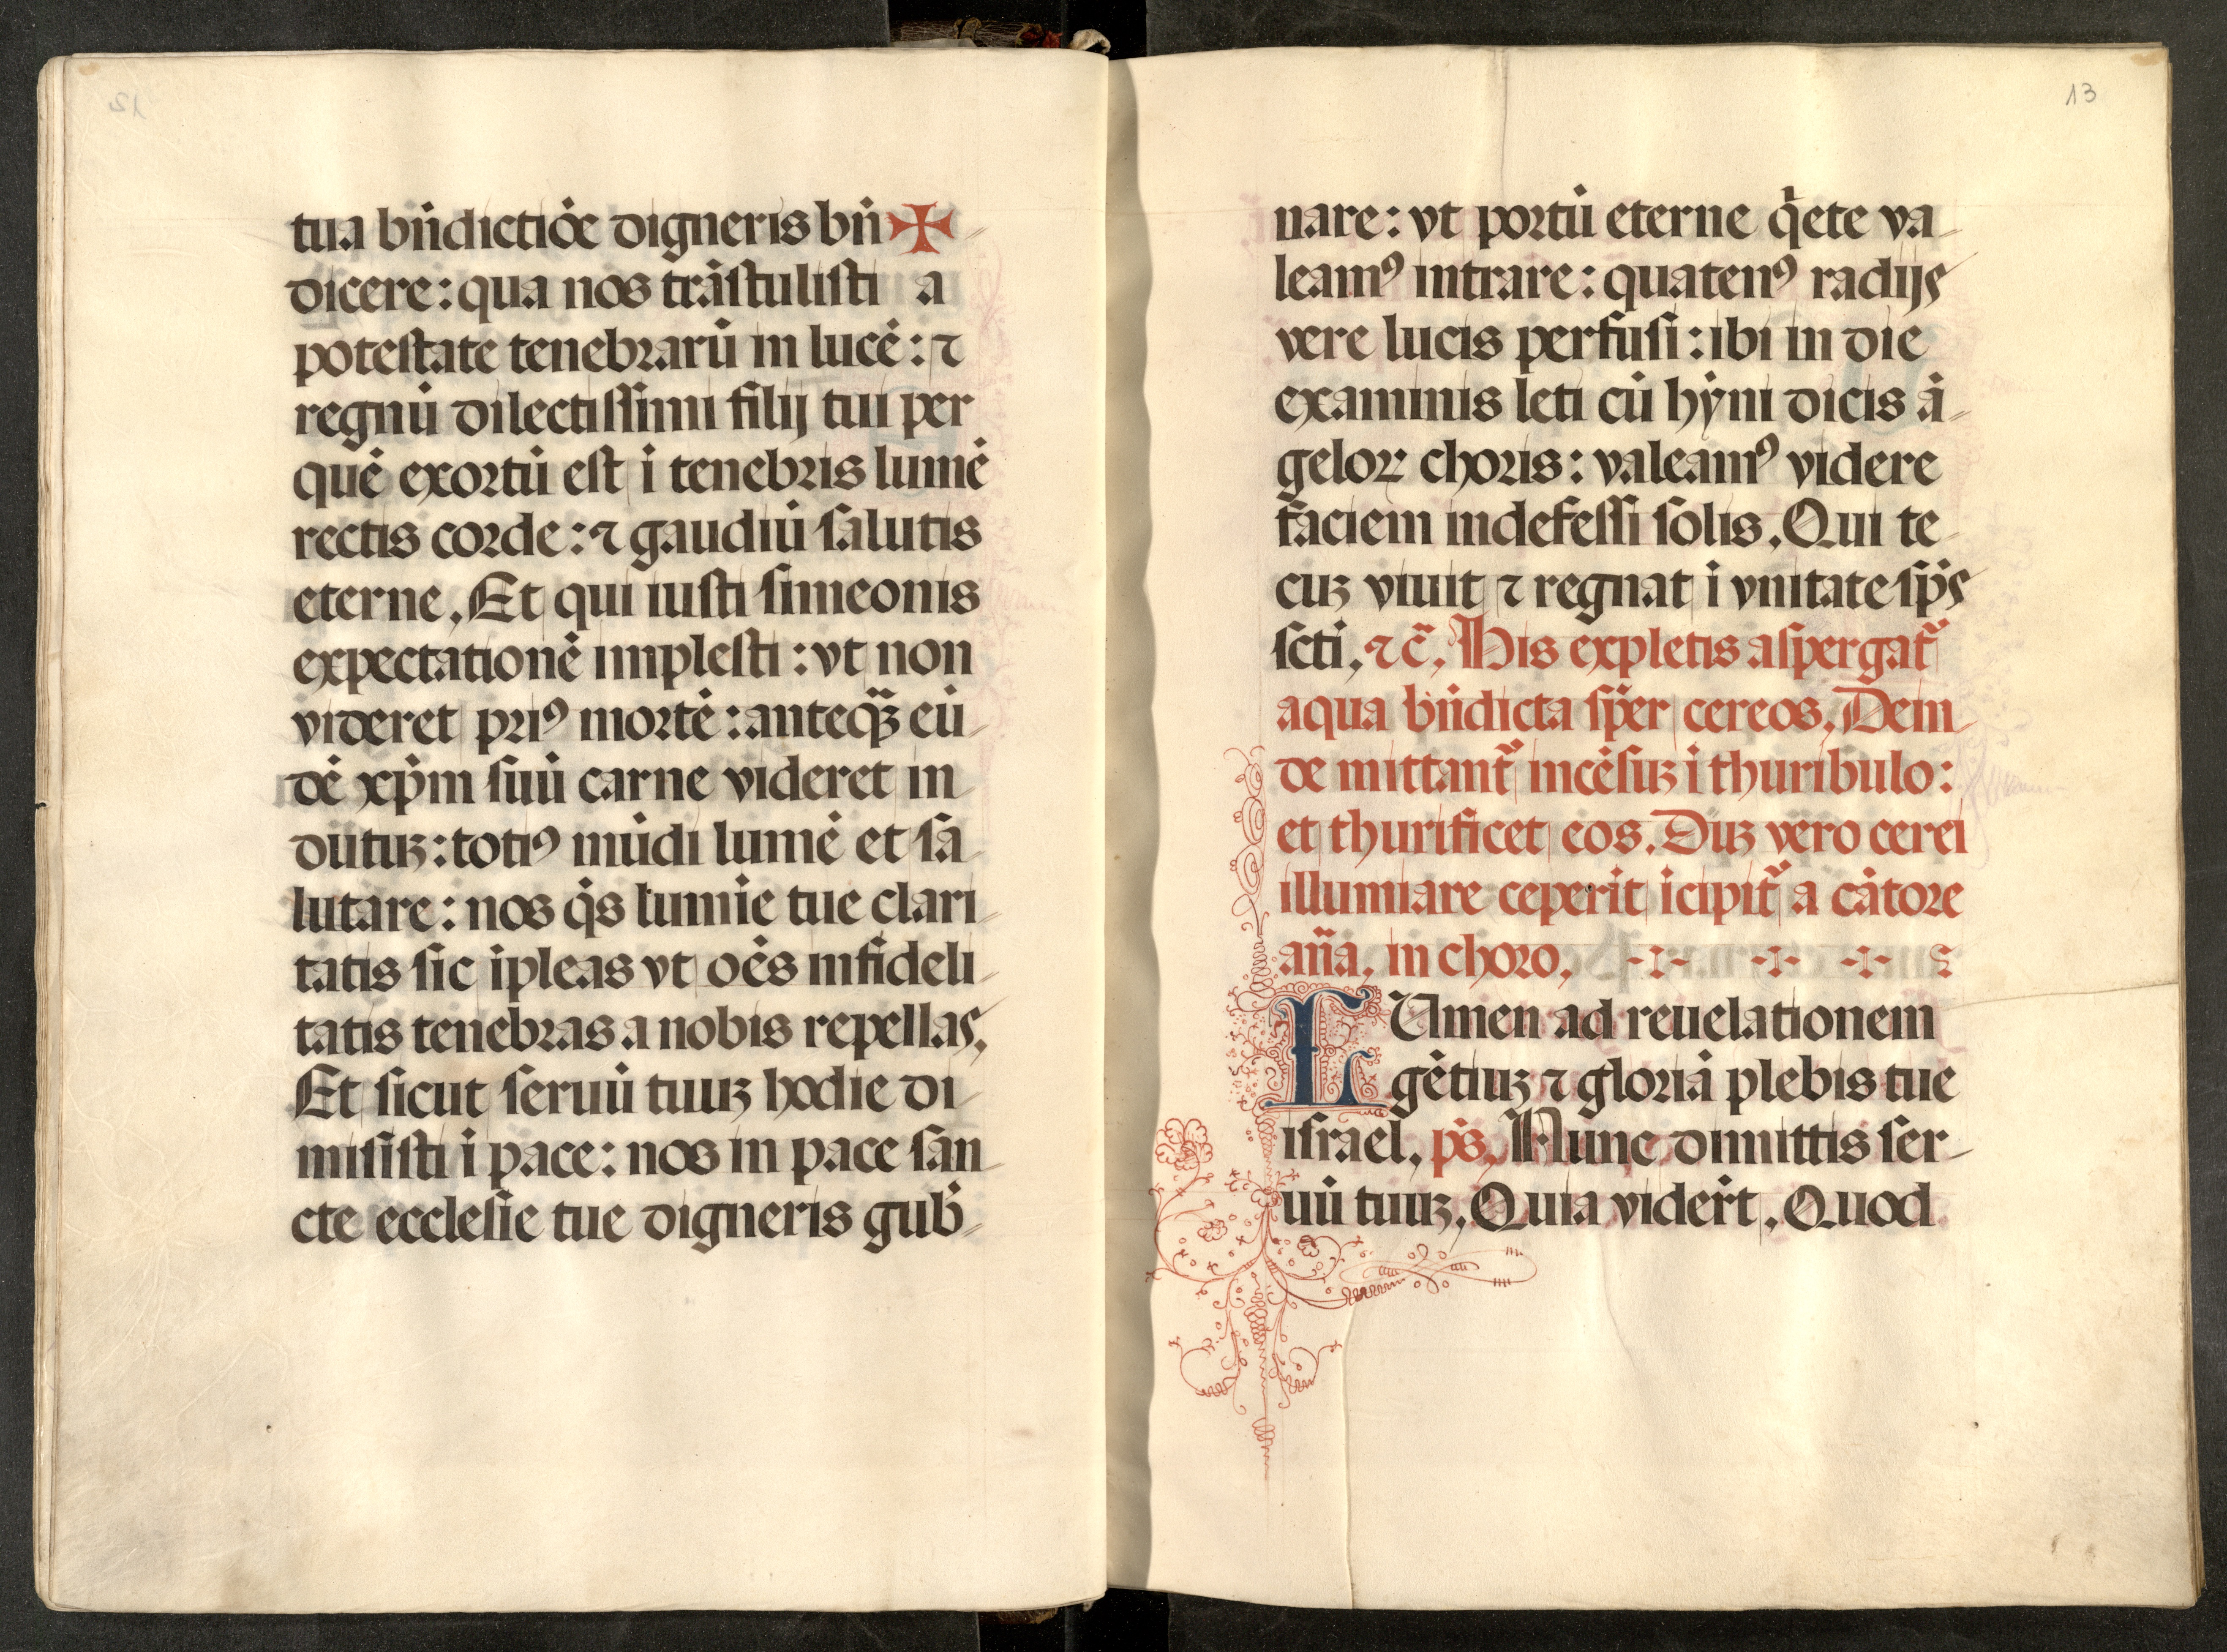 tua bn̄dictiōe digneris bn̄✠
dicere: qua nos trāſtuliſti a
poteſtate tenebrarū in lucē: ⁊
regnū dilectiſſimi filij tui per
quē exortū eſt i tenebris lumē
rectis corde: ⁊ gaudiū ſalutis
eterne. Et qui iuſti ſimeonis
expectationē impleſti: vt non
videret priꝰ mortē: anteqȝ̄ eū
dē xp̄m ſuū carne videret in
dūtuȝ: totiꝰ mūdi lumē et ſa
lutare: nos q̄s lumīe tue clari
tatis ſic īpleas vt oēs infideli
tatis tenebras a nobis repellas.
Et ſicut ſeruū tuuȝ hodie di
miſiſti i pace: nos in pace ſan
cte eccleſie tue digneris gub̄
13
nare: vt portū eterne q̄ete va
leamꝰ intrare: quatenꝰ radijs
vere lucis perfuſi: ibi in die
examinis leti cū hȳni dicis ā
geloꝝ choris: valeamꝰ videre
faciem indefeſſi ſolis. Qui te
cuȝ viuit ⁊ regnat i vnitate ſp̄s
ſcti. ⁊c̄. His expletis aſpergat᷑
aqua bn̄dicta ſp̄er cereos. Dein
de mittant᷑ incēſuȝ i thuribulo:
et thurificet eos. Duȝ vero cerei
illumīare ceperīt īcipit᷑ a cātore
an̄a. in choro.
LUmen ad reuelationem
gētiuȝ ⁊ gloriā plebis tue
iſrael. p̄s. Nunc dimittis ſer
uū tuuȝ. Quia viderūt. Quod